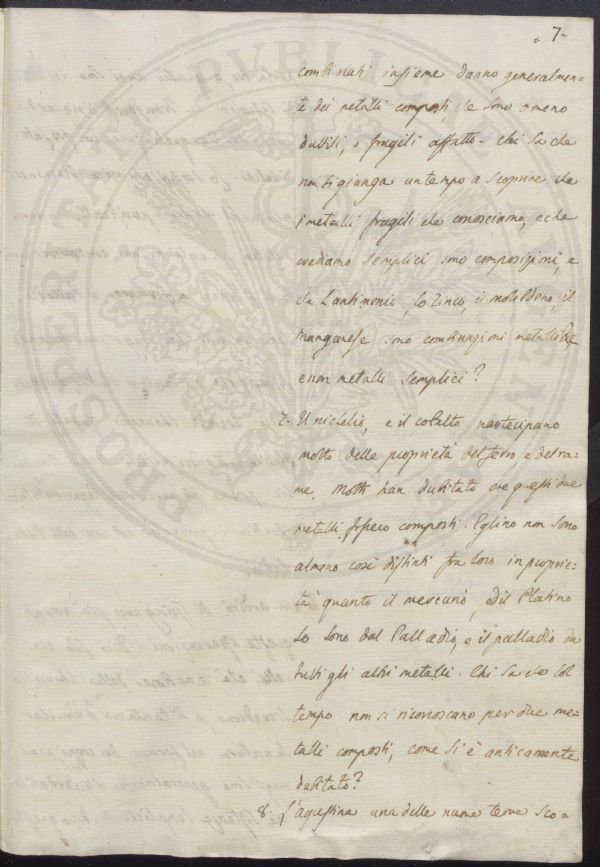 = 7 =
combinati insieme danno generalmen=
te dei metalli composti, se sono o meno
duttili, o fragili affatto - chi sa che
non si giunga un tempo a scoprire che
i metalli fragili che conosciamo, e che
crediamo semplici sono composizioni, e
che l'antimonio, lo zinco, il molibdeno, il
manganese sono combinazioni metalliche
e non metalli semplici?
7. Il nichelio, e il cobalto partecipano
molto delle proprietà del ferro, e del ra=
me. Molti han dubitato che questi due
metalli fossero composti. Eglino non sono
almeno così distinti fra loro in proprie=
tà quanto il mercurio, ed il Platino
lo sono dal Palladio, e il palladio da
tutti gli altri metalli. Chi sa che col
tempo non si riconoscano per due me=
talli composti, come si è anticamente
dubitato?
8. L'agustina una delle nuove terre sco=
PROSPERITATI PVBLICAE